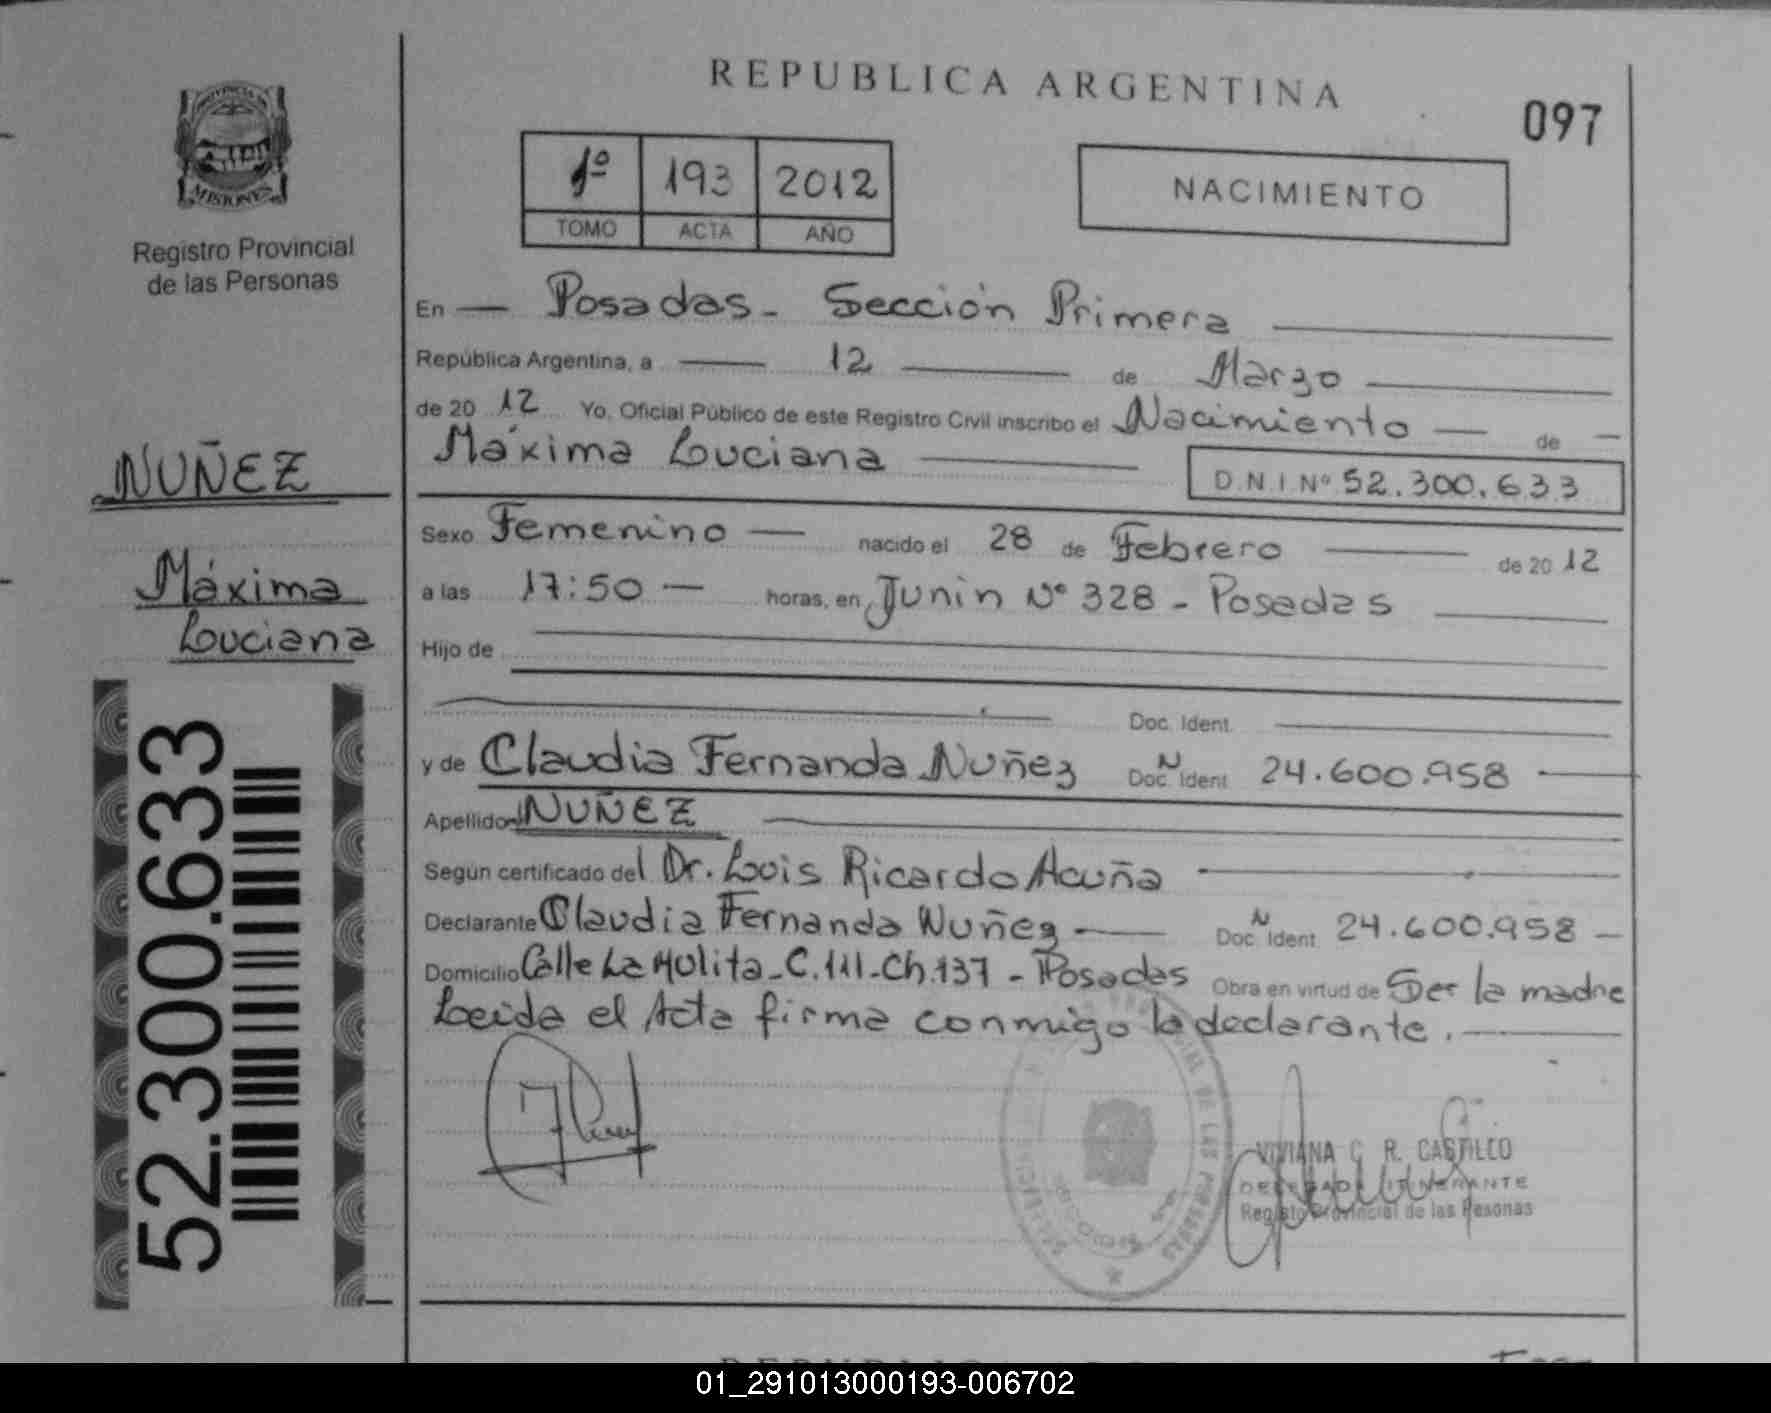 REPUBLICA ARGENTINA
097
1º 193 2012
TOMO ACTA AÑO
NACIMIENTO
PROVINCIA DE
MISIONES
Registro Provincial
de las Personas
En — Posadas - Sección Primera
República Argentina, a 12 de Marzo
de 20 12 Yo, Oficial Público de este Registro Civil inscribo el Nacimiento — de —
Máxima Luciana
D.N.I Nº 52.300.633
NUÑEZ
Máxima
Luciana
Sexo Femenino — nacido el 28 de Febrero de 20 12
a las 17:50 — horas, en Junin Nº 328 - Posadas
Hijo de
Doc. Ident.
y de Claudia Fernanda Nuñez Doc. N Ident. 24.600.958
Apellido NUÑEZ
Según certificado del Dr. Luis Ricardo Acuña
Declarante Claudia Fernanda Nuñez — Doc. N Ident. 24.600.958 —
Domicilio Calle La Mulita - C.111 - Ch.137 - Posadas Obra en virtud de Ser la madre
Leida el Acta firma conmigo la declarante.
52.300.633
VIVIANA C. R. CASTILLO
DELEGADA ITINERANTE
Registo Provincial de las Pesonas
01_291013000193-006702